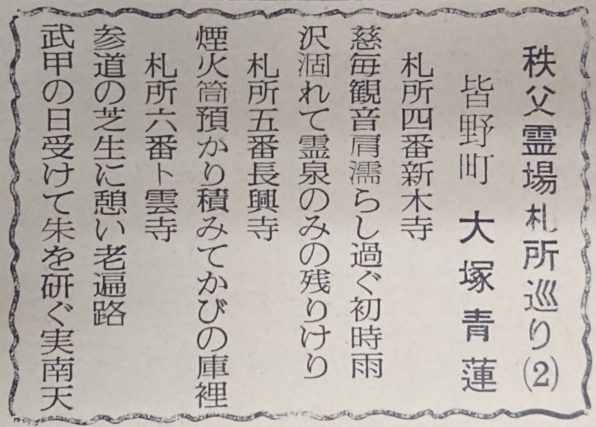 秩父霊場札所巡り(2)
皆野町 大塚青蓮
札所四番新木寺
慈毎観音肩濡らし過ぐ初時雨
沢涸れて霊泉のみの残りけり
札所五番長興寺
煙火筒預かり積みてかびの庫裡
札所六番ト雲寺
参道の芝生に憩い老遍路
武甲の日受けて朱を研ぐ実南天